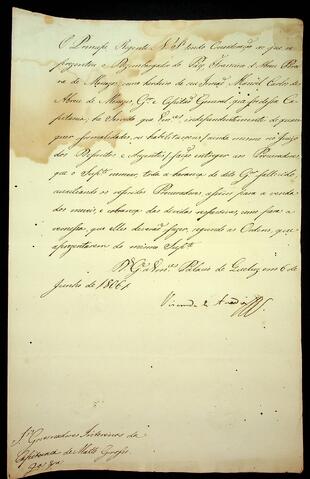 O Principe Regente N. S. tendo Consideração ao que re
prezentou o Dezembargador do Paço, Francisco de Abreu Perei
ra de Menezes, como herdeiro de seu Irmão Manoel Carlos de
Abreu de Menezes, Gor. e Capitão General que foi dessa Ca
pitania, he Servido que Vm.ces independentemente de quaes
quer formalidades, ou habilitaçoens, ainda mesmo no Juizo
dos Defuntos e Auzentes, fação entregar aos Procuradores,
que o Supp.e nomear, toda a herança do dito Gor. fallecido,
auxiliando os referidos Procuradores assim para a venda
dos moveis, e cobrança das dividas respectivas, como para a
remessa, que elles deverão fazer, segundo as Ordens que
aprezentarem do mesmo Supp.e
D.s G.e a Vm.ces Palacio de Queluz em 6 de
Junho de 1806
Visconde de Anadia
S.res Governadores Interinos da
Capitania de Matto Grosso